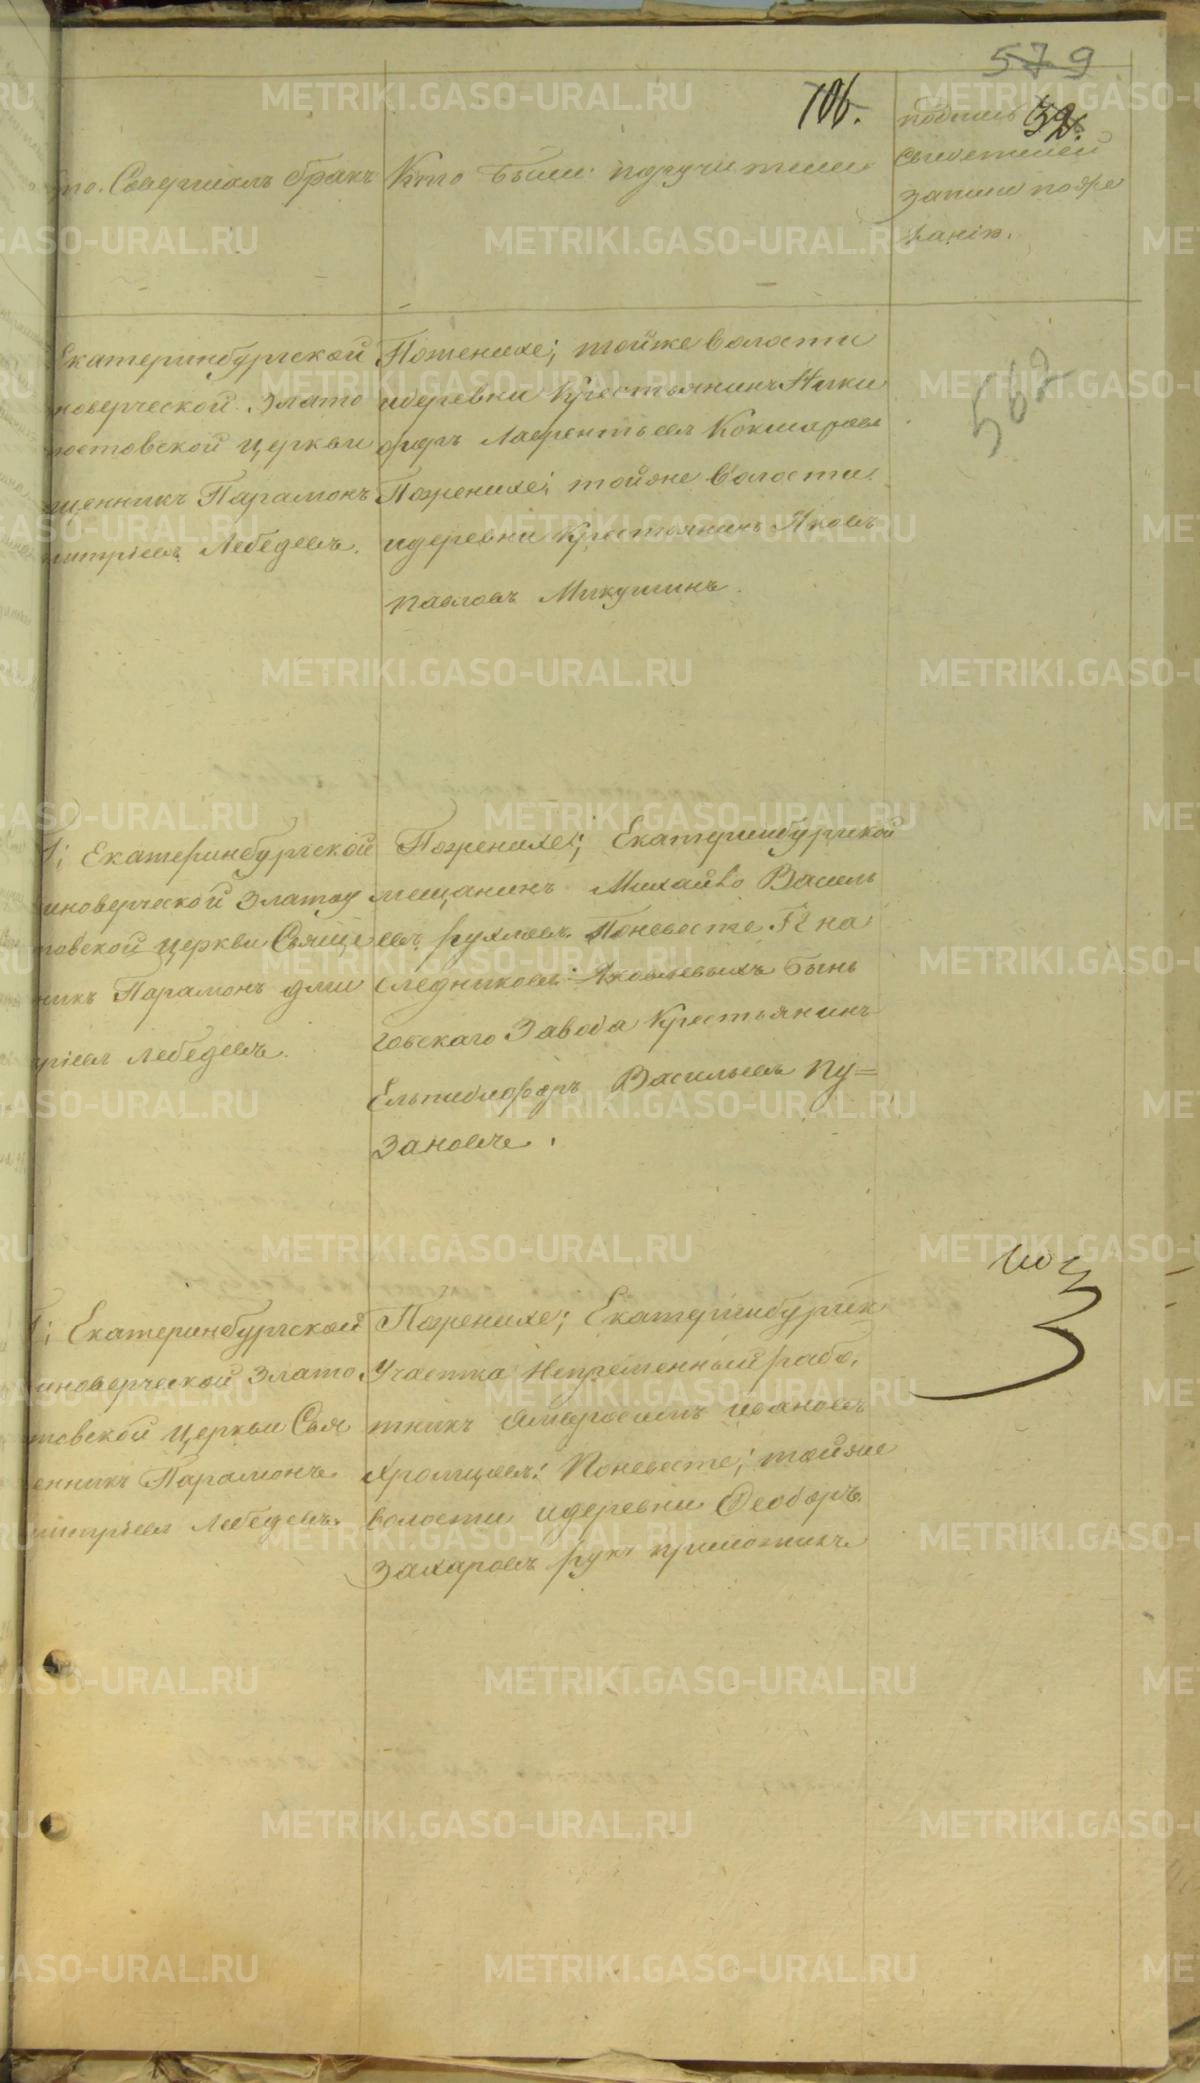 579
106.
32.
то. Совершалъ бракъ
Кто были поручители
подпись
свидетелей
записи по же
ланію.
Екатеринбургской
новерческой Злато
устовской церкви
щенникъ Парамонъ
митріевъ Лебедевъ.
Поженихе; тойже волости
идеревни Крестьянинъ Ники
форъ Лаврентьевъ Кокшаровъ
Поженихе; тойже волости
идеревни Крестьянинъ Яковъ
Павловъ Микушинъ.
562
Екатеринбургской
иноверческой Златоу
товской церкви Свяще
никъ Парамонъ Дми
тріевъ Лебедевъ.
Поженихе; Екатеринбургской
мещанинъ Михайло Василь
евъ Поневесте Гг на
следниковъ Яковлевыхъ Бынь
говскаго Завода Крестьянинъ
Елпидифоръ Васильевъ Пу=
зановъ.
Екатеринбургской
иноверческой Злато
товской церкви Свя
енникъ Парамонъ
митріевъ Лебедевъ.
Поженихе; Екатеринбургск
Участка Непременный рабо,
тникъ Амвросимъ Ивановъ
Хромцовъ: Поневесте; тойже
волости идеревни Феодоръ
Захаровъ